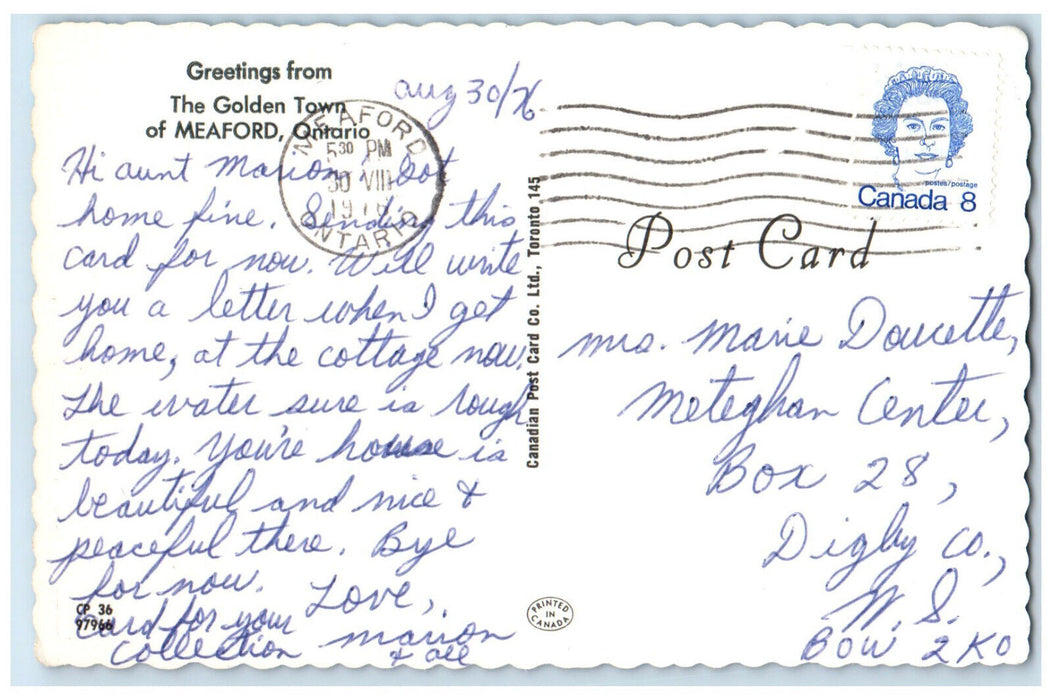 Greetings from
The Golden Town
of MEAFORD, Ontario
aug 30/76
MEAFORD
5 30 PM
30 VIII
1976
ONTARIO
postes/postage
Canada 8
Post Card
Hi aunt Marion, Got
home fine. Sending this
card for now. Will write
you a letter when I get
home, at the cottage now.
The water sure is rough
today. You're house is
beautiful and nice &
peaceful there. Bye
for now. Love,
card for your
collection marion
& all
CP 36
97966
Canadian Post Card Co. Ltd., Toronto 145
PRINTED
IN
CANADA
mrs. Marie Doucette,
Meteghan Center,
Box 28,
Digby co.,
N. S.
BOW 2KO